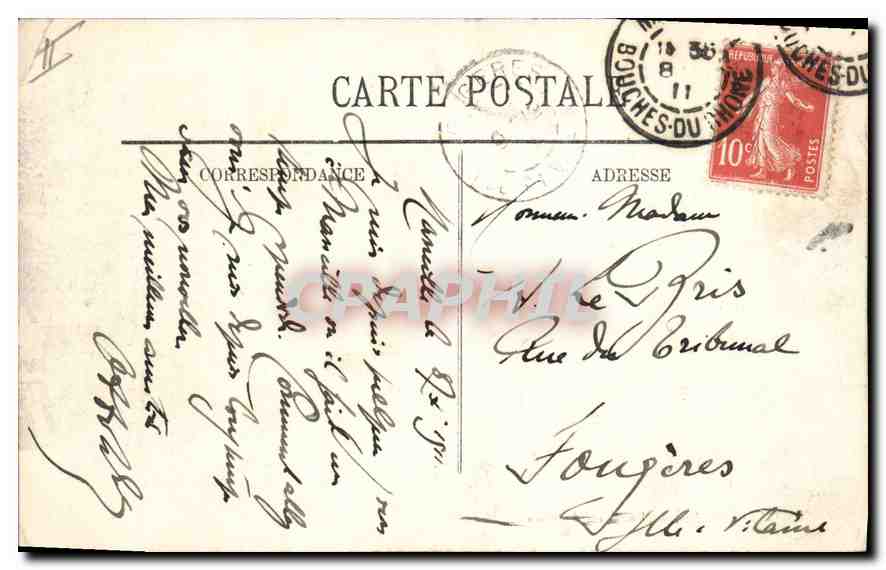 II
CARTE POSTALE
CORRESPONDANCE
ADRESSE
BOUCHES-DU-RHONE
8
11
BOUCHES-DU
REPUBLIQUE
10c
POSTES
Marseille le 8/X 1911
Je suis depuis quelques jours
à Marseille où il fait un
temps splendide. Comment allez
vous, je suis depuis longtemps
sans vos nouvelles
Mes meilleures amitiés
Monsieur Madame
Le Bris
Rue du Tribunal
Fougères
Ille-Vilaine
CPAPHIL